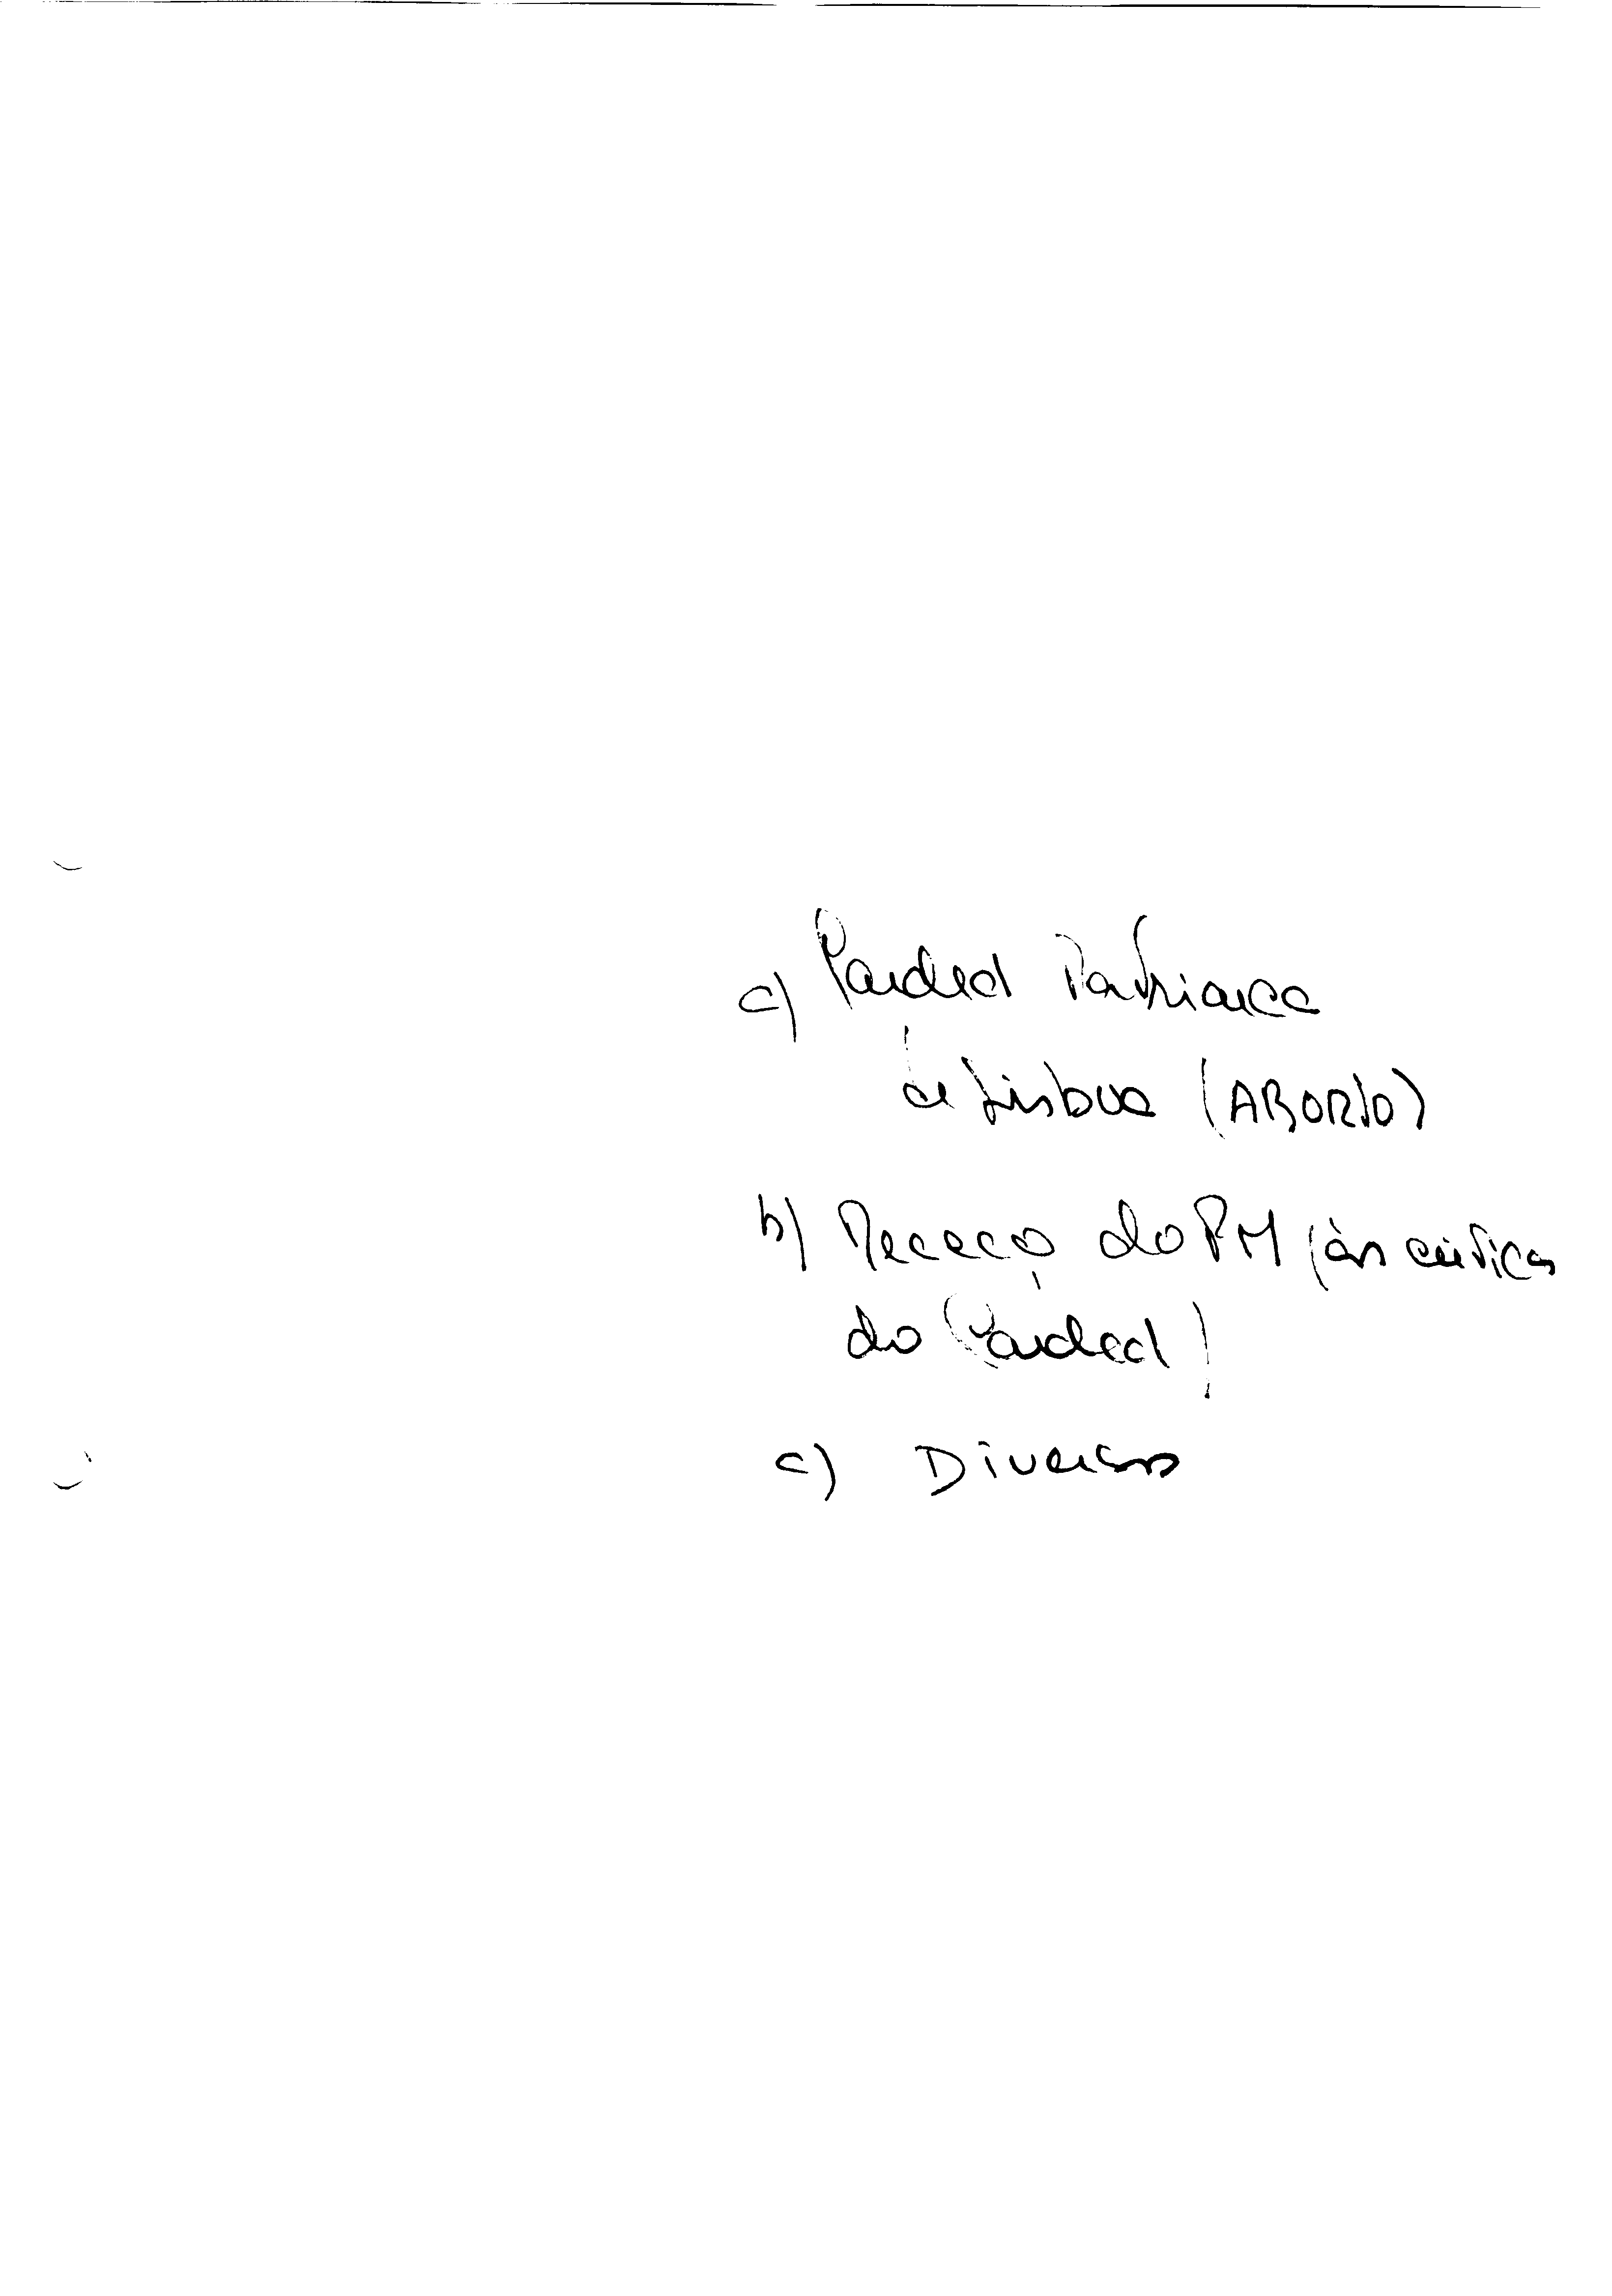 a) Cardeal Patriarca
de Lisboa (ABORTO)
b) Reacção do PM (às críticas
do Cardeal)
c) Diversos